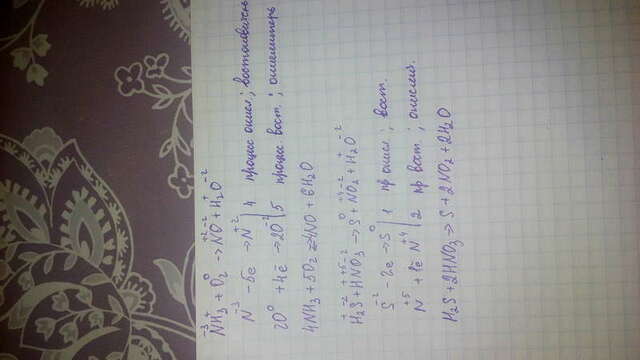 -3 + 0 +2 -2 + -2
NH₃ + O₂ → NO + H₂O
N⁻³ - 5e → N⁺² | 4 процесс окисл.; восстановитель
2O⁰ + 4e → 2O⁻² | 5 процесс восст.; окислитель
4NH₃ + 5O₂ → 4NO + 6H₂O
+ -2 + +5 -2 0 +4 -2 + -2
H₂S + HNO₃ → S + NO₂ + H₂O
S⁻² - 2e → S⁰ | 1 пр окисл; восст.
N⁺⁵ + 1e N⁺⁴ | 2 пр восст; окислит.
H₂S + 2HNO₃ → S + 2NO₂ + 2H₂O